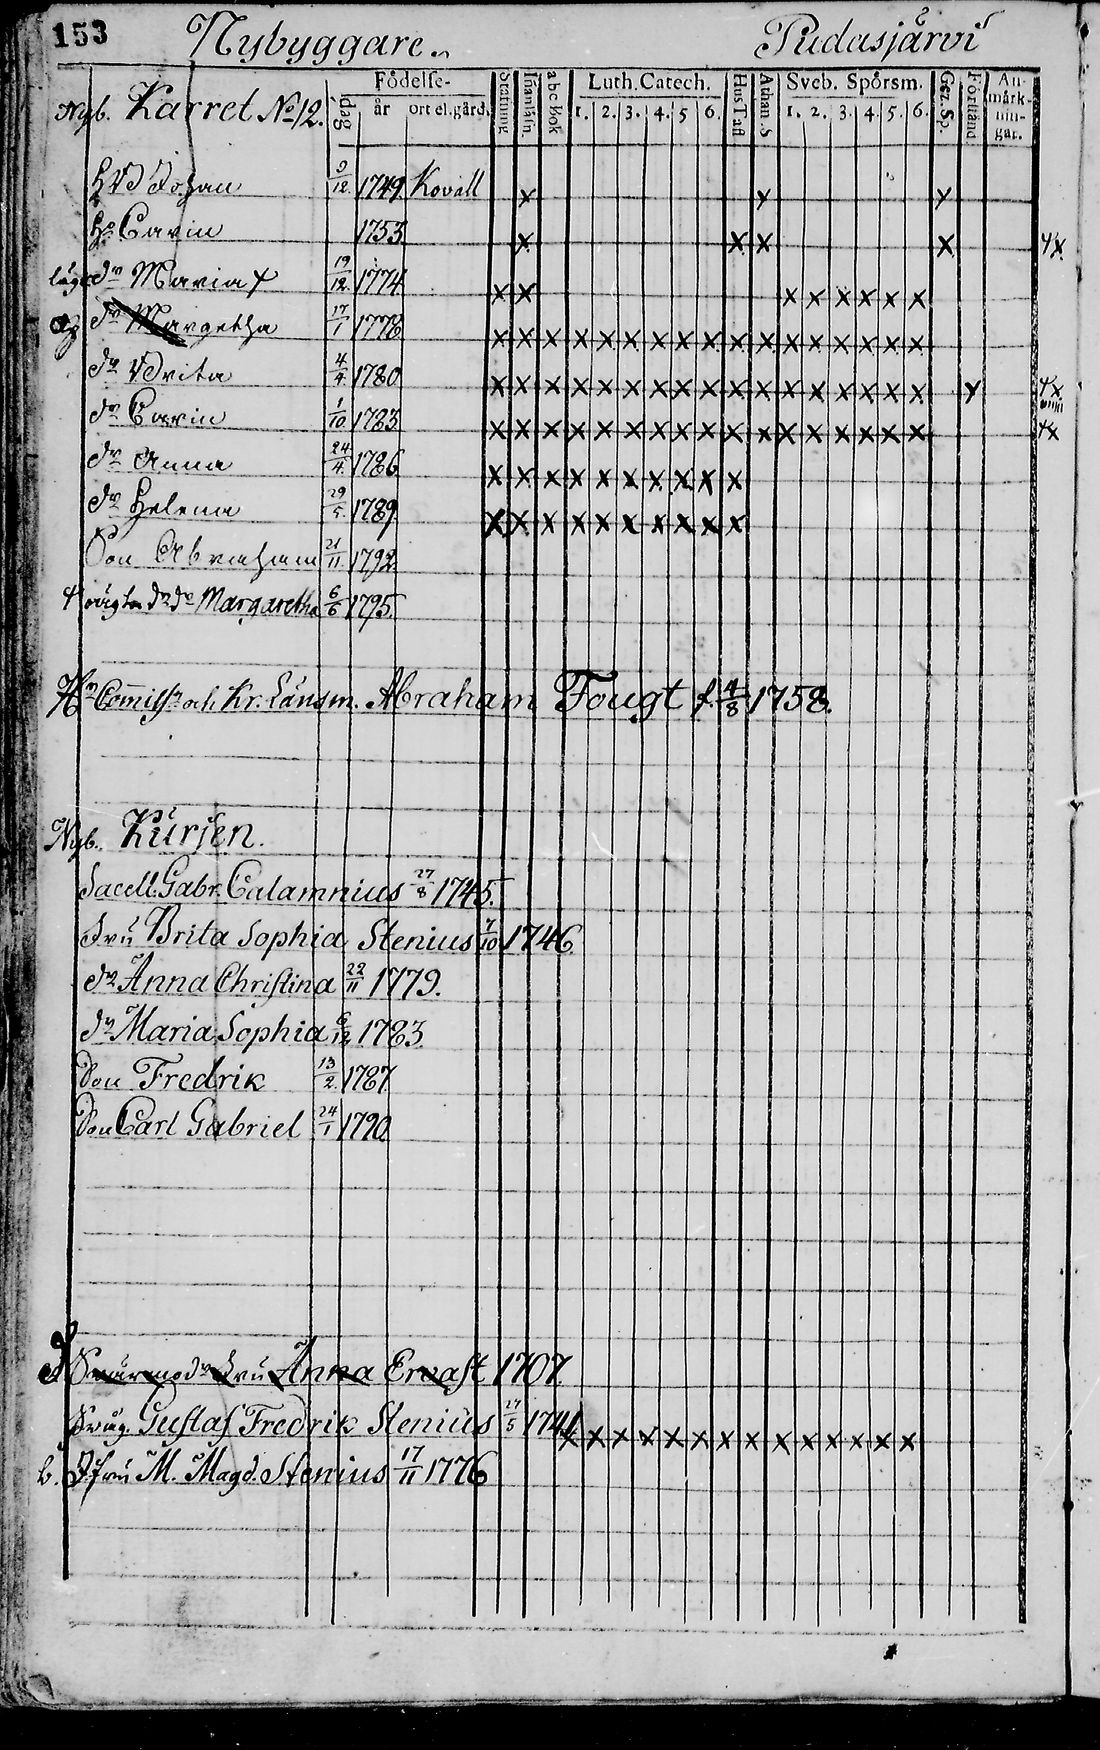 153 Nybyggare. Pudasjärvi
Födelse-
dag år ort el. gård.
Stafning Innanläsn. abc Bok Luth. Catech. 1. 2. 3. 4. 5 6. Hus Tafl Athan. S Sveb. Spörsm. 1. 2. 3. 4. 5. 6. Gez. Sp. Förstånd An-märk-nin-gar.
Nyb. Karret No 12.
Johan 9/12 1749 x x x
Hu Carin 1753 x x x x
dr Maria † 19/12 1774 x x x x x x x x
dr Margetha 17/1 1778 x x x x x x x x x x x x x x x x x
dr Brita 4/4 1780 x x x x x x x x x x x x x x x x x x
dr Carin 1/10 1783 x x x x x x x x x x x x x x x x x
dr Anna 24/4 1786 x x x x x x x x x x
dr Helena 29/5 1789 x x x x x x x x x x
Son Abraham 21/11 1792
dr Margaretha 6/6 1795.
Hr Commiss: och Kr. Länsm. Abraham Fougt f. 4/8 1758.
Nyb. Kurjen.
Sacell. Gabr. Calamnius 27/8 1745.
Fru Brita Sophia Stenius 7/10 1746
dr Anna Christina 22/11 1779.
dr Maria Sophia 6/12 1783.
Son Fredrik 13/2 1787
Son Carl Gabriel 24/1 1790
Swärmodr Fru Anna Ervast 1707.
Gustaf Fredrik Stenius 27/5 1741 x x x x x x x x x x x x x x
b. Jfru M. Magd. Stenius 17/11 1776